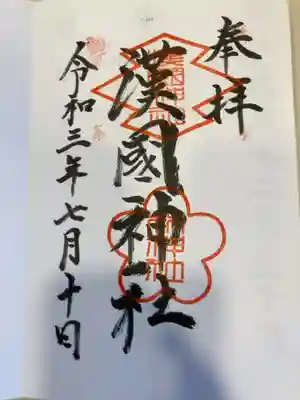 奉拝
漢國神社
令和三年七月十日